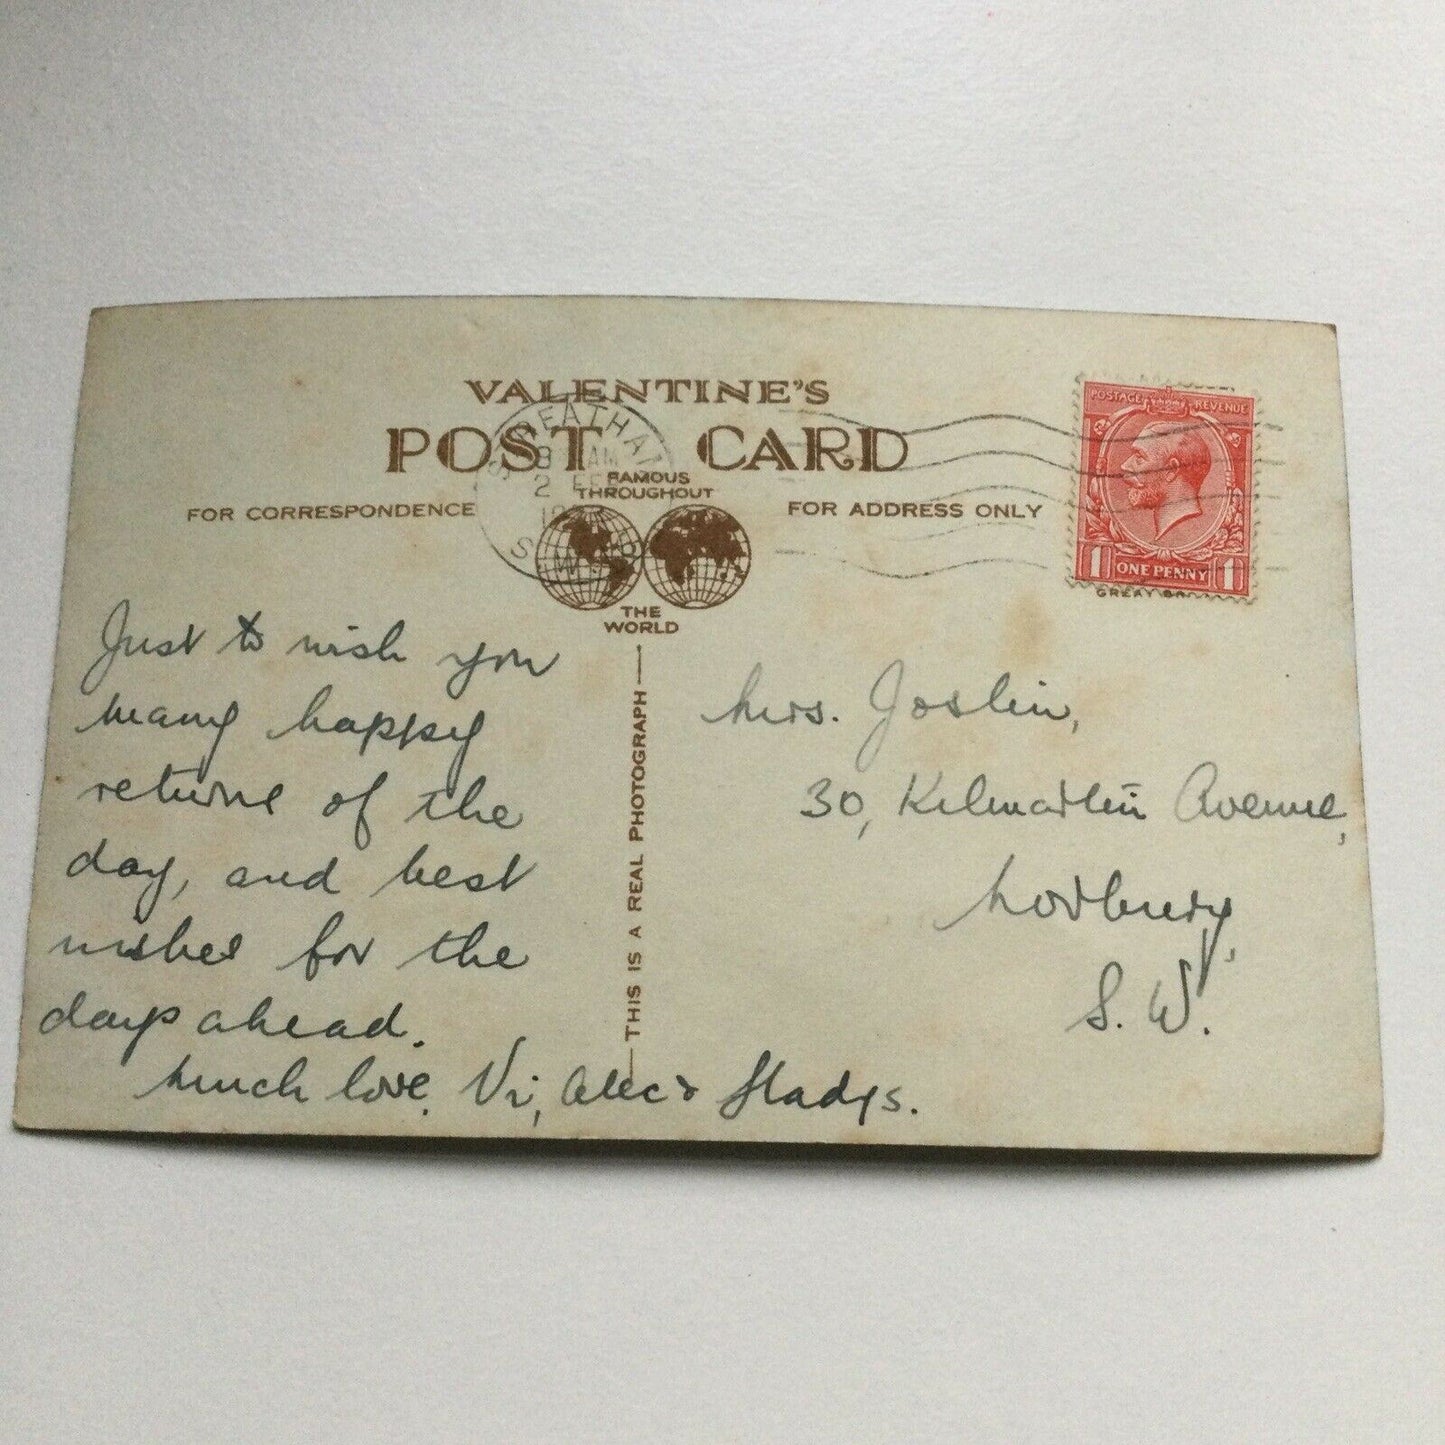 VALENTINE'S
POST CARD
FAMOUS
THROUGHOUT
THE
WORLD
FOR CORRESPONDENCE
FOR ADDRESS ONLY
STREATHAM
8 AM
2 FE
S.W.
POSTAGE REVENUE
1 ONE PENNY 1
THIS IS A REAL PHOTOGRAPH
Just to wish you
many happy
returns of the
day, and best
wishes for the
days ahead.
Much love, Vi, Alec & Gladys.
Mrs. Joslin,
30, Kilmartin Avenue,
Norbury,
S. W.